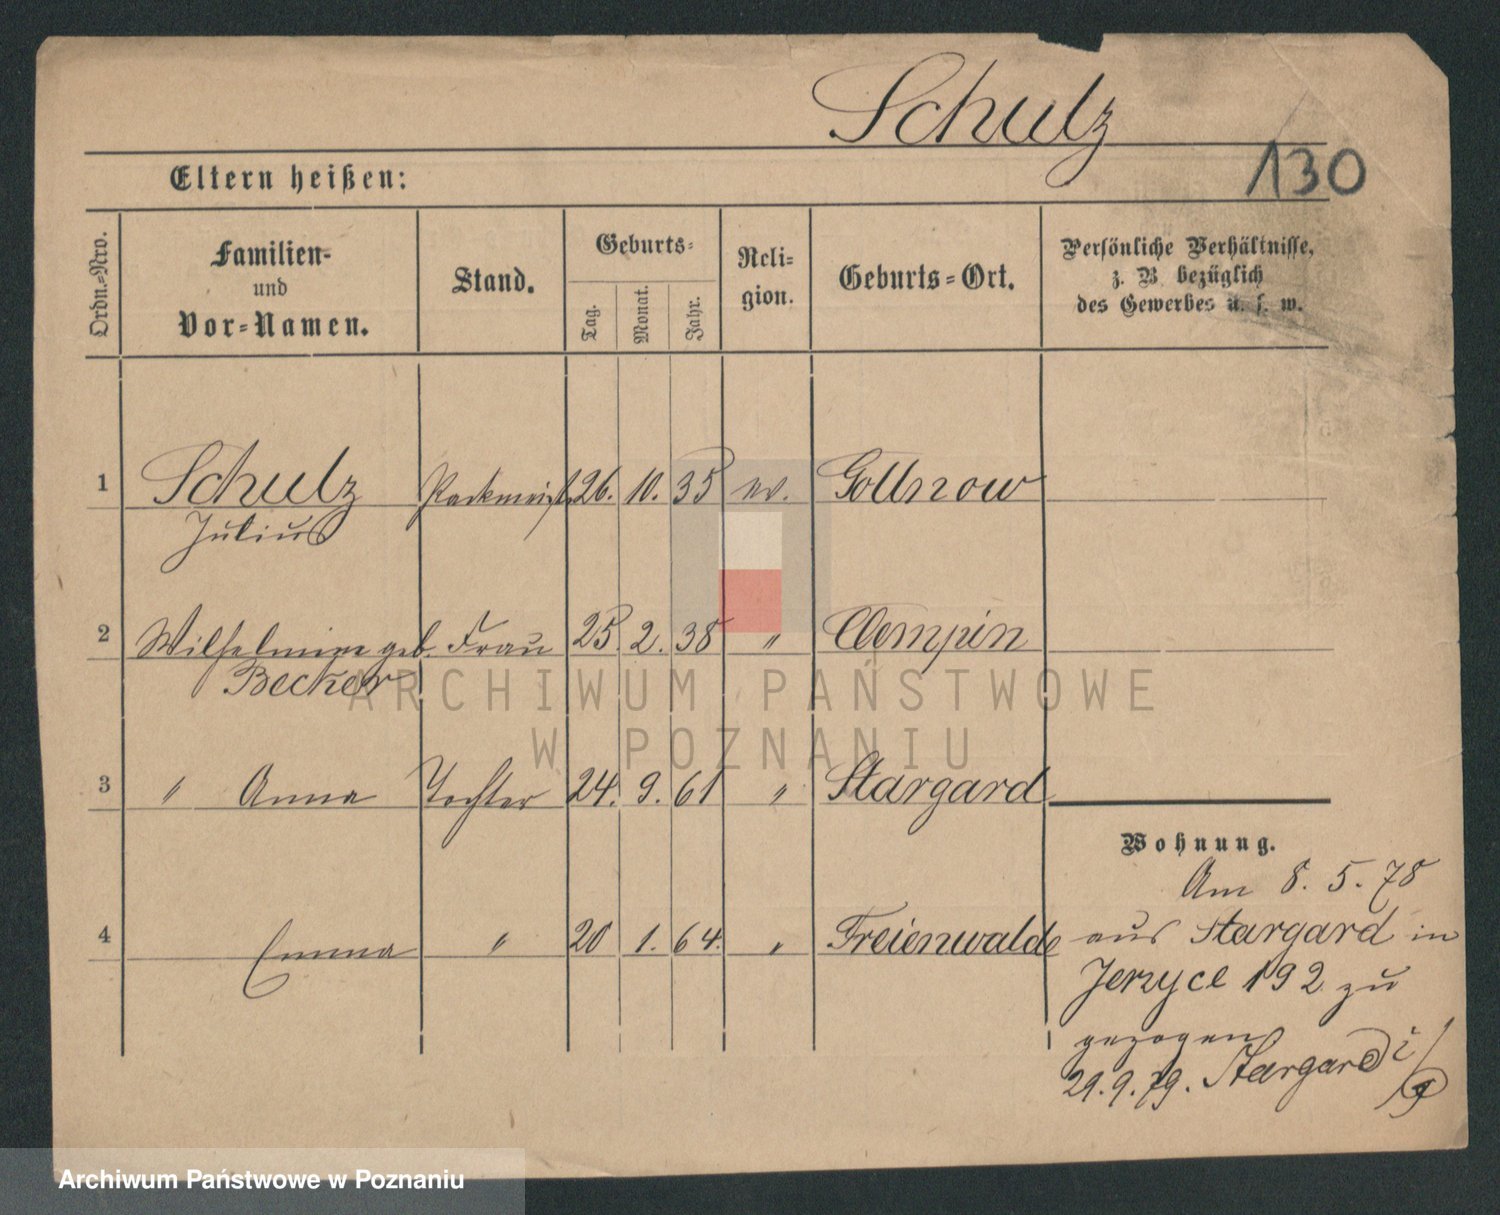 Schulz
130
Eltern heißen:
Ordn.-Nro.
Familien-
und
Vor-Namen.
Stand.
Geburts-
Tag.
Monat.
Jahr.
Reli-
gion.
Geburts-Ort.
Persönliche Verhältnisse,
z. B. bezüglich
des Gewerbes u. s. w.
1 Schulz Packmeist. 26. 10. 35 ev. Gollnow
Julius
2 Wilhelmine geb. Frau 25. 2. 38 " Clempin
Becker
3 " Anna Tochter 24. 9. 61 " Stargard
4 Emma " 20 1. 64. " Freienwalde
Wohnung.
Am 8. 5. 78
aus Stargard in
Jerzyce 192 zu
gezogen
29.9.79. Stargard i/
ARCHIWUM PAŃSTWOWE
W POZNANIU
Archiwum Państwowe w Poznaniu